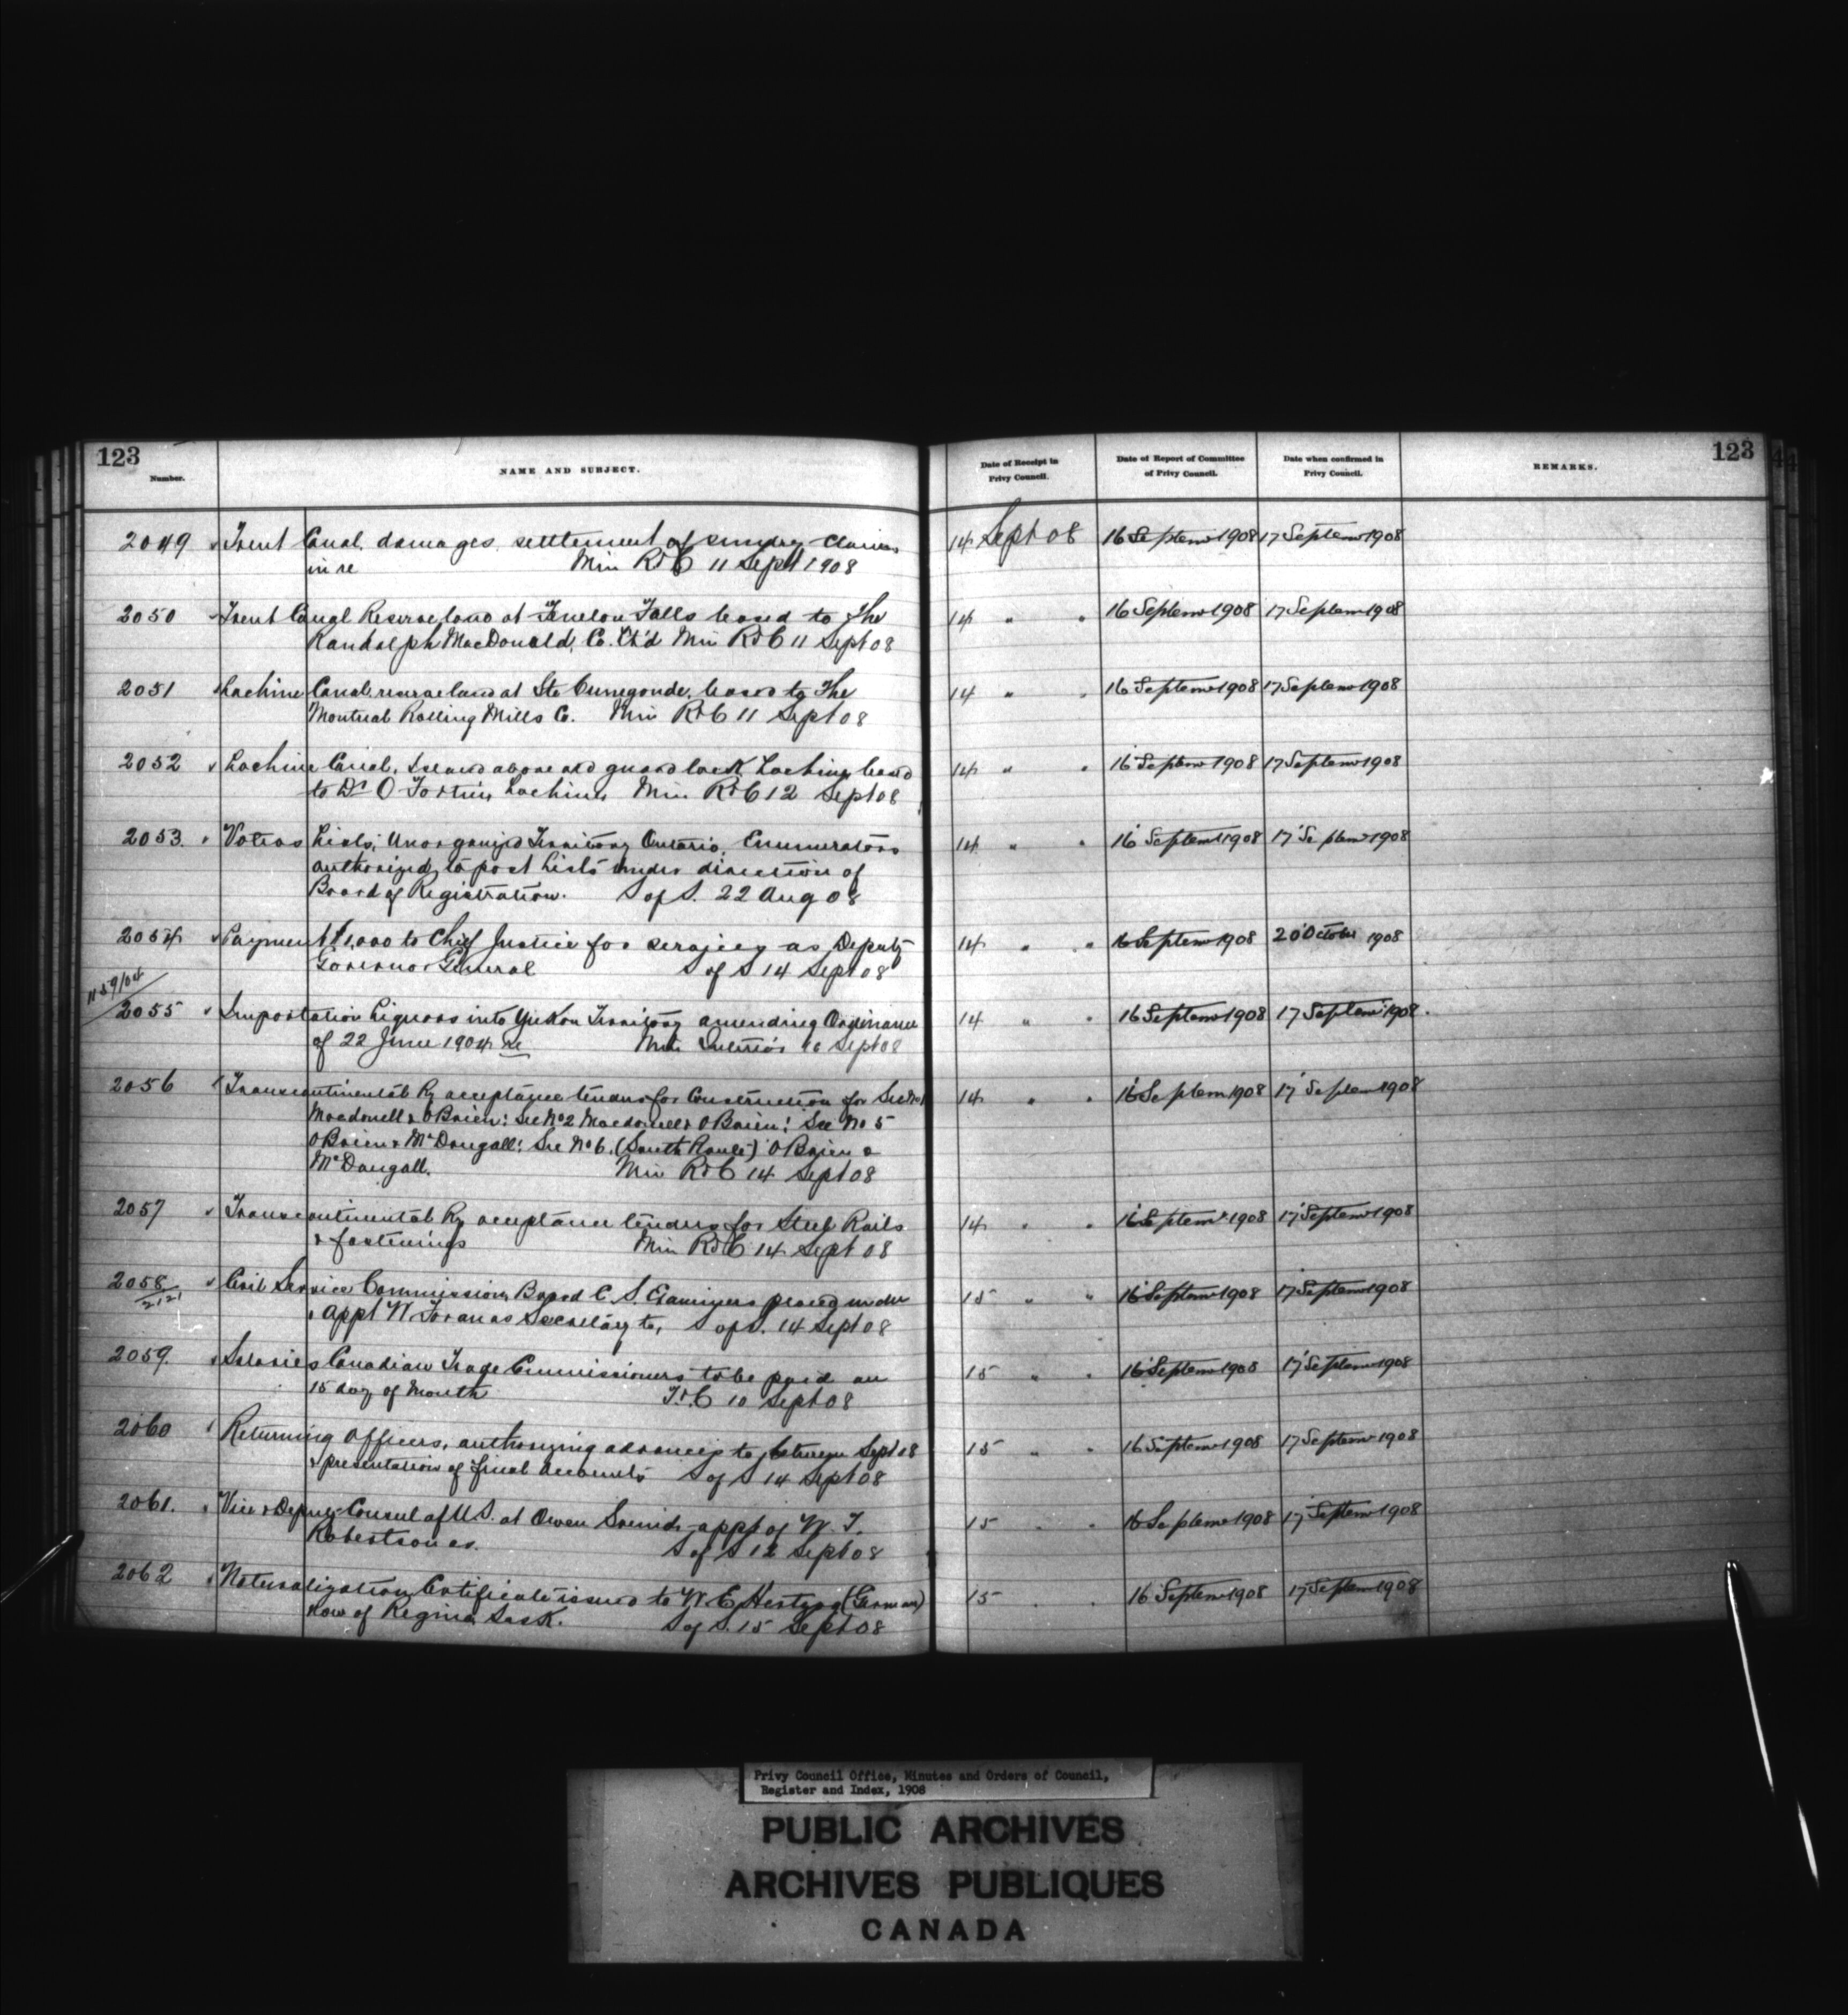 123
Number.
NAME AND SUBJECT.
Date of Receipt in Privy Council.
Date of Report of Committee of Privy Council.
Date when confirmed in Privy Council.
REMARKS.
123
2049 Trent Canal, damages, settlement of sundry claims 14 Sept 08 16 Septem 1908 17 Septem 1908
in re Min R & C 11 Sept 1908
2050 Trent Canal Reserve land at Fenelon Falls leased to The 14 " " 16 Septem 1908 17 Septem 1908
Randolph MacDonald, Co. Lt'd Min R & C 11 Sept 08
2051 Lachine Canal reserve land at Ste Cunegonde, leased to The 14 " " 16 Septem 1908 17 Septem 1908
Montreal Rolling Mills Co. Min R & C 11 Sept 08
2052 Lachine Canal, Island above old guard lock, Lachine, leased 14 " " 16 Septem 1908 17 Septem 1908
to Dr O Fortin, Lachine, Min R & C 12 Sept 08
2053. Voters Lists, Unorganized Territory Ontario, Enumerators 14 " " 16 Septem 1908 17 Septem 1908
authorized to post Lists under direction of
Board of Registration. S of S. 22 Aug 08
2054 Payment $1,000 to Chief Justice for services as Deputy 14 " " 16 Septem 1908 20 October 1908
Governor General S of S 14 Sept 08
1159/04
2055 Importation Liquors into Yukon Territory amending Ordinance 14 " " 16 Septem 1908 17 Septem 1908.
of 22 June 1904 re Min Interior 10 Sept 08
2056 Transcontinental Ry acceptance tenders for Construction for Sec No 1 14 " " 16 Septem 1908 17 Septem 1908
Macdonell & OBrien: Sec No 2 Macdonell & OBrien: Sec No 5
OBrien & McDougall: Sec No 6. (South Route) OBrien &
McDougall. Min R & C 14 Sept 08
2057 Transcontinental Ry acceptance tenders for Steel Rails 14 " " 16 Septemr 1908 17 Septem 1908
& fastenings Min R & C 14 Sept 08
2058 Civil Service Commission, Board C. S. Examiners placed under 15 " " 16 Septem 1908 17 Septem 1908
2121
& appt W Foran as Secretary to, S of S. 14 Sept 08
2059. Salaries Canadian Trade Commissioners to be paid on 15 " " 16 Septem 1908 17 Septem 1908
15 day of Month T & C 10 Sept 08
2060 Returning Officers, authorizing advances to, between Sept 18 15 " " 16 Septem 1908 17 Septem 1908
& presentation of final accounts S of S 14 Sept 08
2061. Vice & Deputy Consul of U.S. at Owen Sound, appt of W. T. 15 " " 16 Septem 1908 17 Septem 1908
Robertson as. S of S 12 Sept 08
2062 Naturalization Certificate issued to W. E. Hertzog (German) 15 " " 16 Septem 1908 17 Septem 1908
now of Regina Sask. S of S. 15 Sept 08
Privy Council Office, Minutes and Orders of Council,
Register and Index, 1908
PUBLIC ARCHIVES
ARCHIVES PUBLIQUES
CANADA